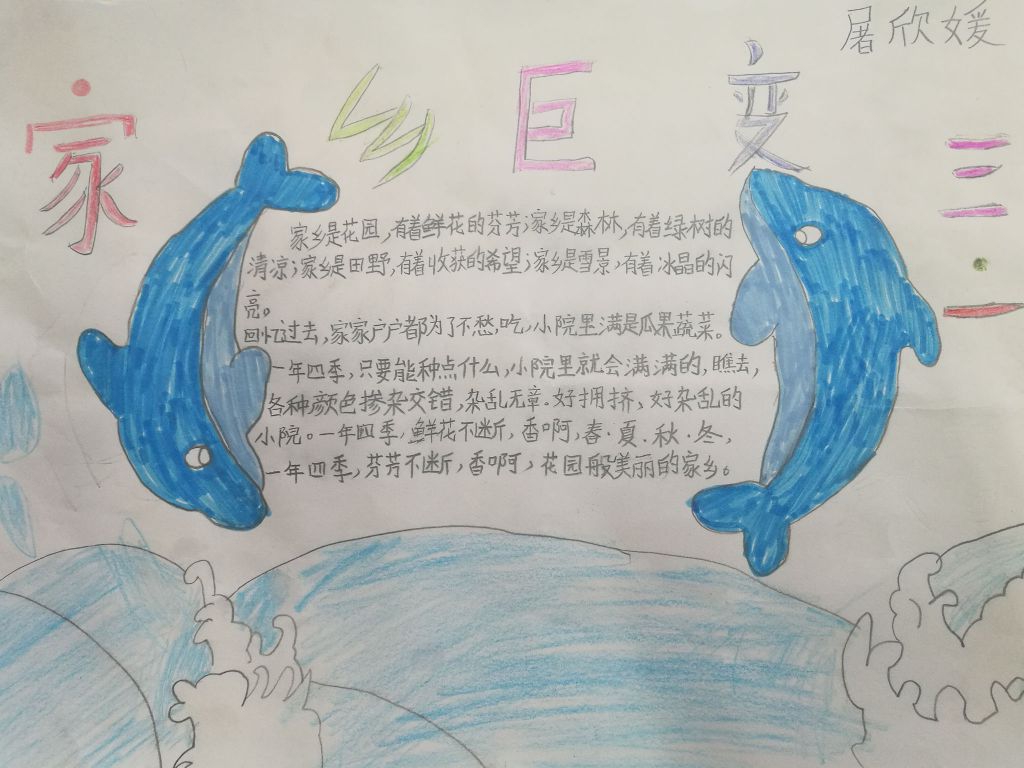 屠欣媛
家乡巨变
三·一
家乡是花园,有着鲜花的芬芳;家乡是森林,有着绿树的
清凉;家乡是田野,有着收获的希望;家乡是雪景,有着冰晶的闪
亮。
回忆过去,家家户户都为了不愁,吃,小院里满是瓜果蔬菜。
一年四季,只要能种点什么,小院里就会满满的,瞧去,
各种颜色掺杂交错,杂乱无章.好拥挤、好杂乱的
小院。一年四季,鲜花不断,香啊,春·夏.秋.冬,
一年四季,芬芳不断,香啊,花园般美丽的家乡。